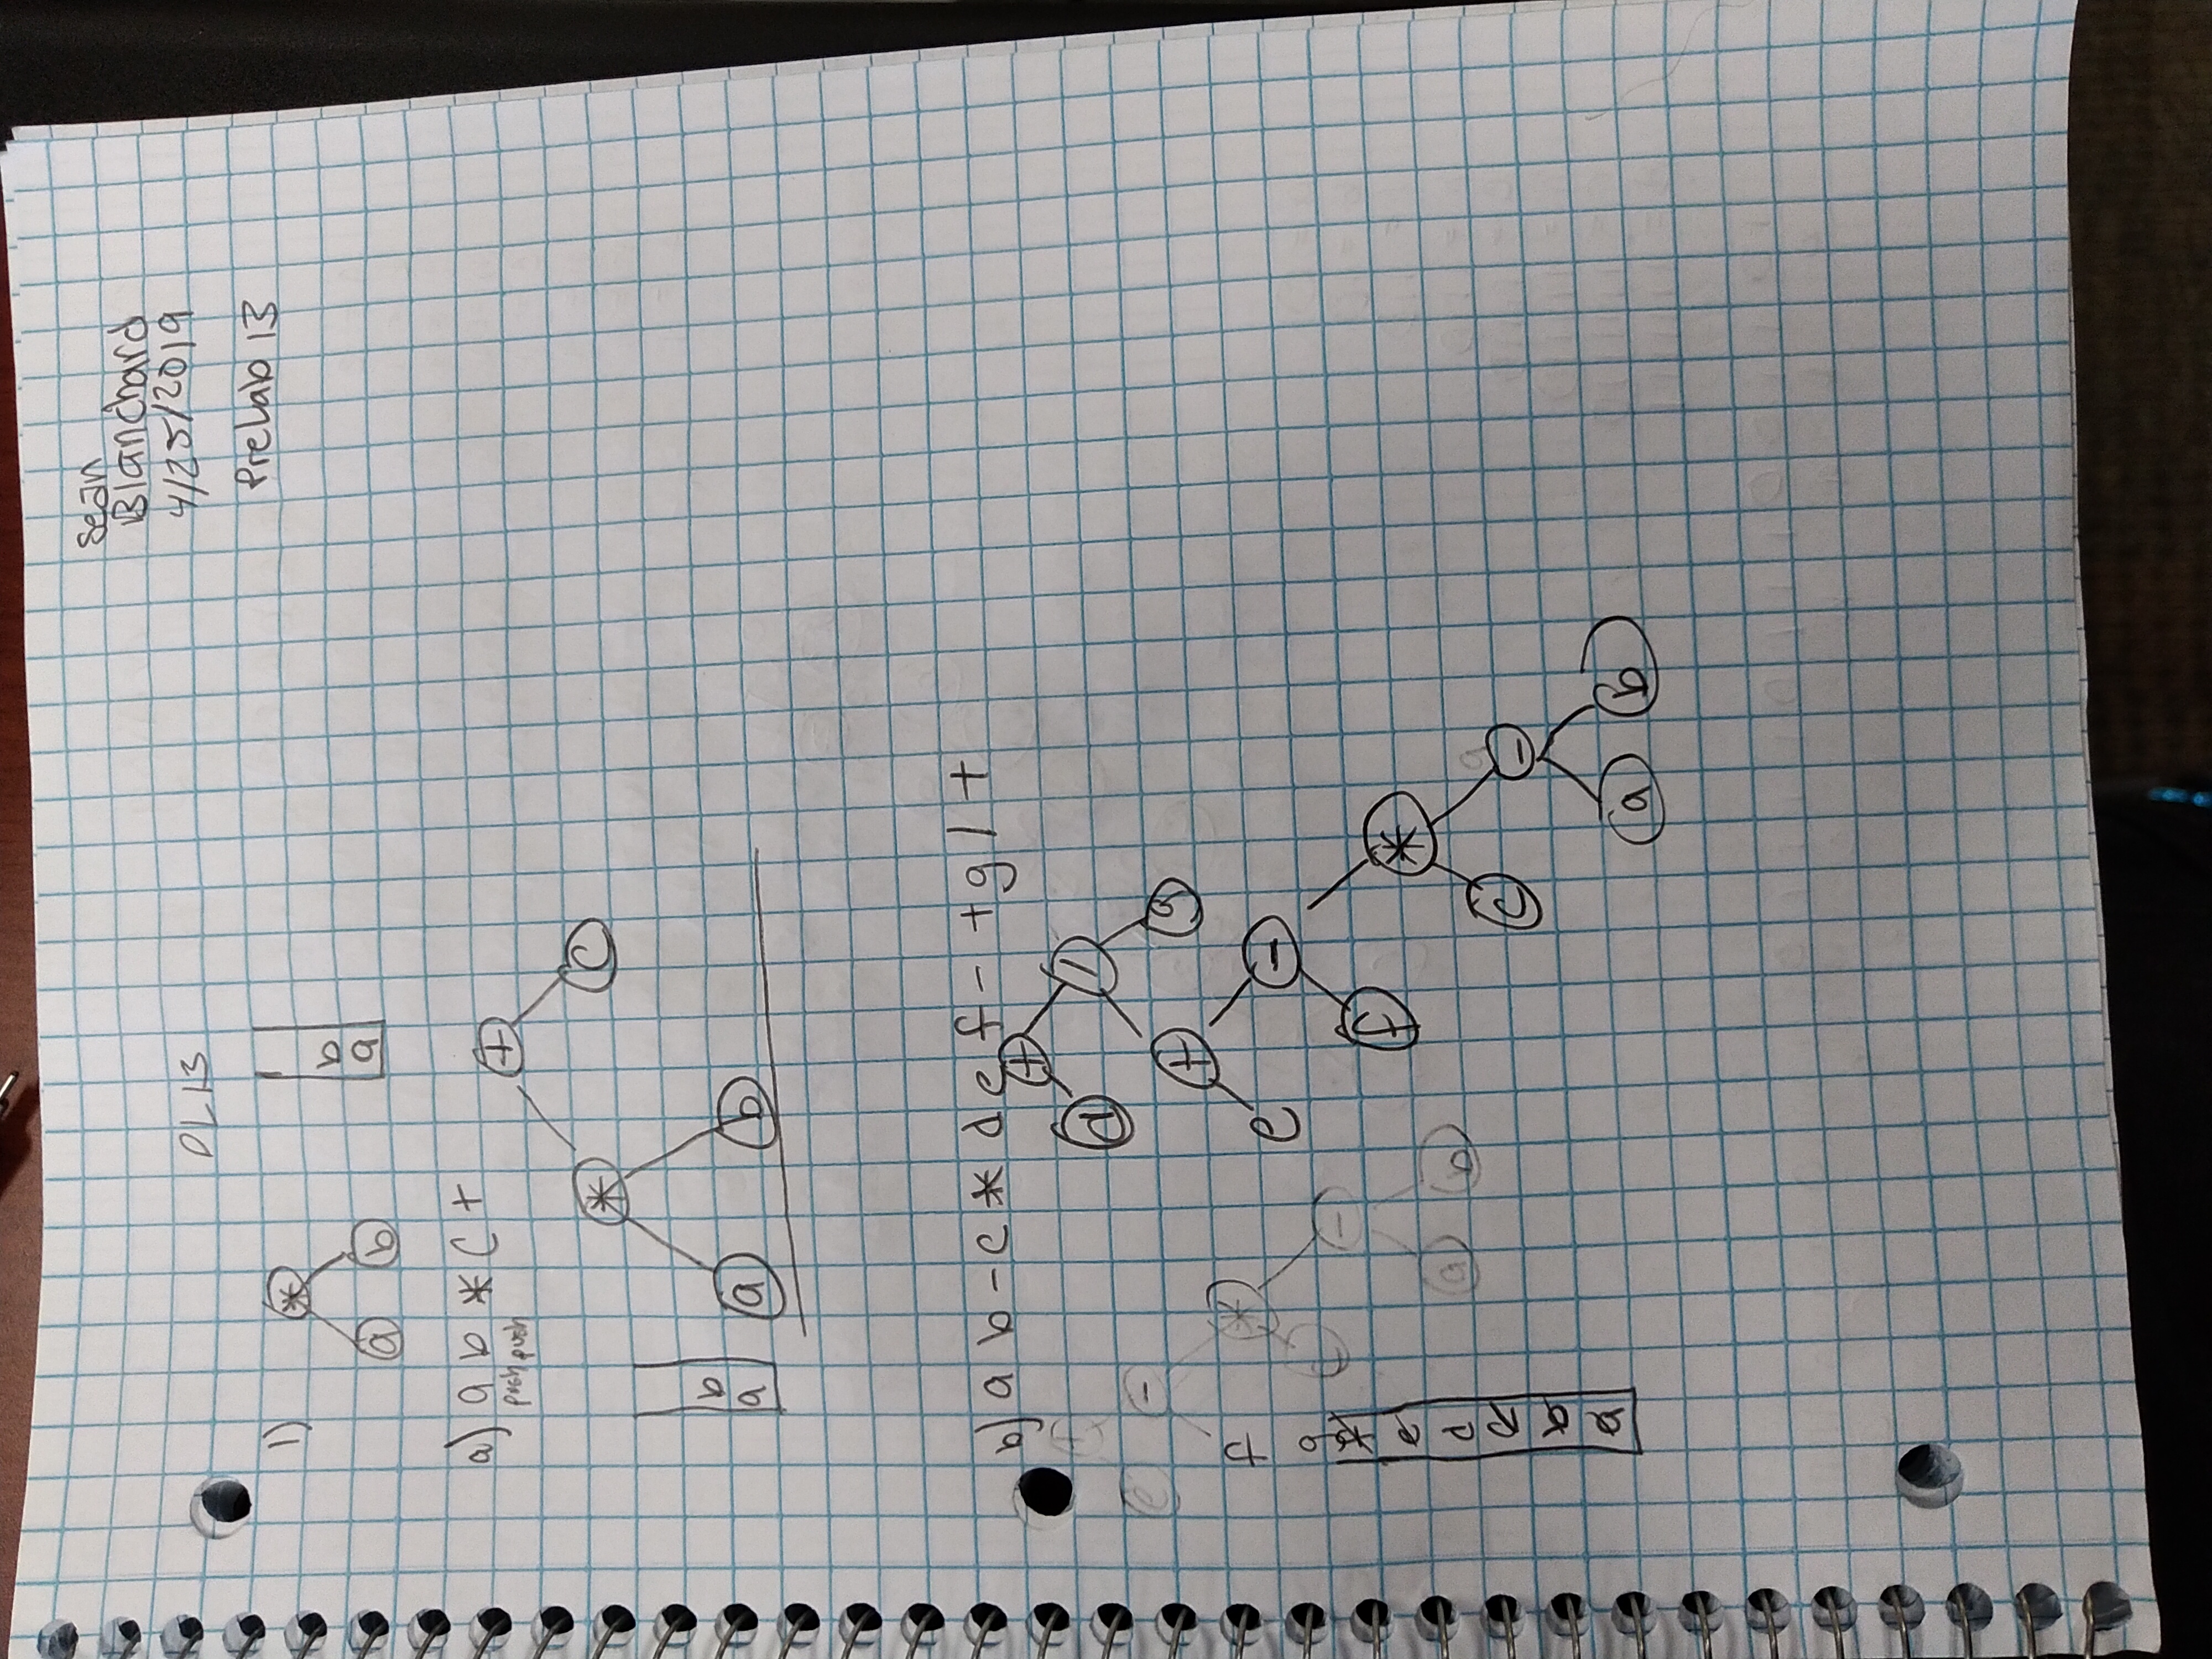 Sean
Blanchard
4/25/2019
PreLab 13
PL13
1)
*
a b
b
a
a) a b * c +
push push
+
* c
b
a
a b
b) a b - c * d e f - + g / +
+
d /
+
e -
+ g
f
*
e -
c
g
-
f
*
e
a b
d
c -
c
b
a
a b